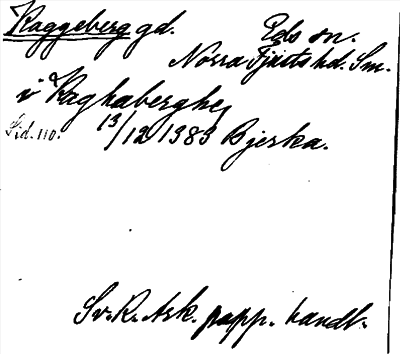 Kaggeberg gd. Eds sn.
Norra Tjusts hd. Sm.
i Kaghaberghe
Sid. 110. 13/12 1383 Bjerka.
Sv. R. Ark. papp. handl.